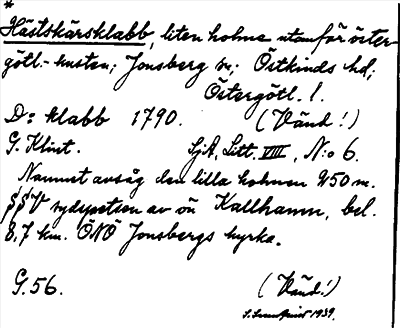 *
Hästskärsklabb, liten holme utanför öster-
götl.-kusten; Jonsberg sn; Östkinds hd;
Östergötl. l.
D: klabb 1790. (Vänd!)
G. Klint. SjA, Litt. VIII, N:o 6.
Namnet avsåg den lilla holmen 250 m.
SSV sydspetsen av ön Kallhamn, bel.
8,7 km. ÖNÖ Jonsbergs kyrka.
G.56. (Vänd!)
1939.